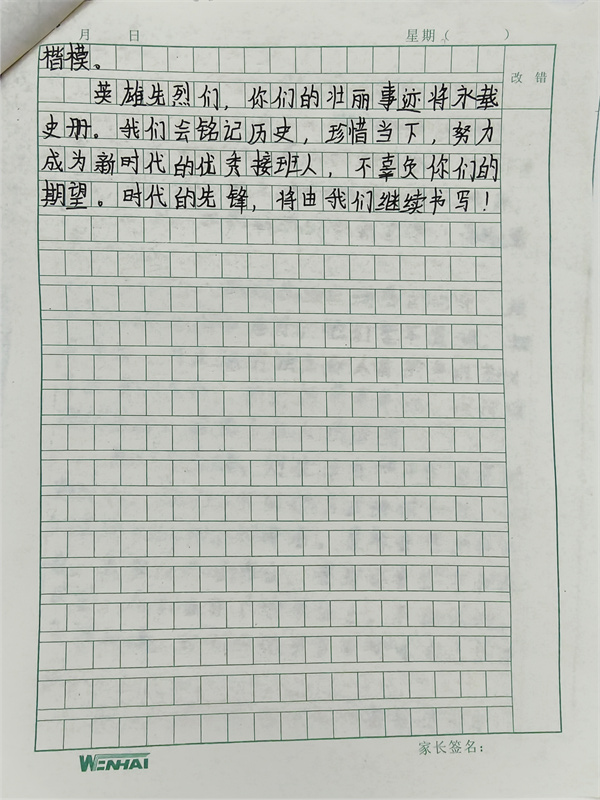 月 日 星期( )
楷模。 改 错
英雄先烈们，你们的壮丽事迹将永载
史册。我们会铭记历史，珍惜当下，努力
成为新时代的优秀接班人，不辜负你们的
期望。时代的先锋，将由我们继续书写！
家长签名：
WENHAI